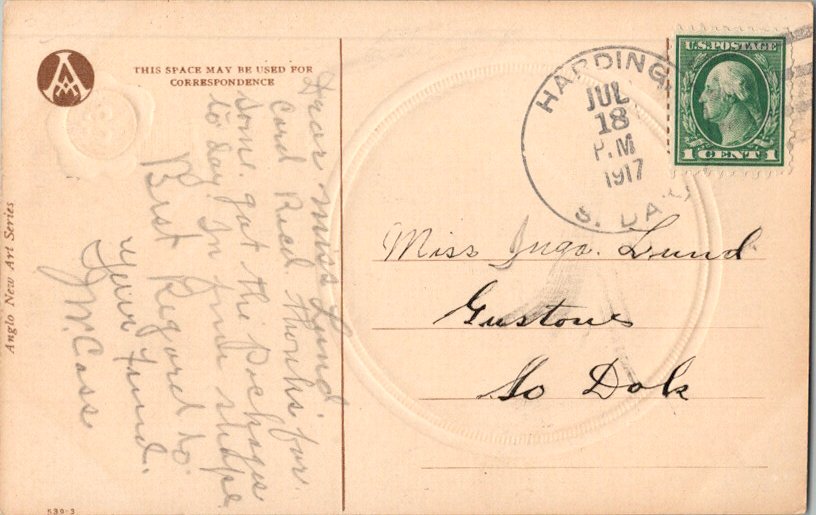 THIS SPACE MAY BE USED FOR
CORRESPONDENCE
Dear Miss Lund
Card Recd. Thanks for
Some. got the Packages
to day In fine shape
Best Regard to
your Friend.
J W. Cass
Anglo New Art Series
539-3
HARDING,
JUL
18
P.M
1917
S. DAK.
U.S. POSTAGE
1 CENT 1
Miss Inga. Lund
Gustave
So Dak